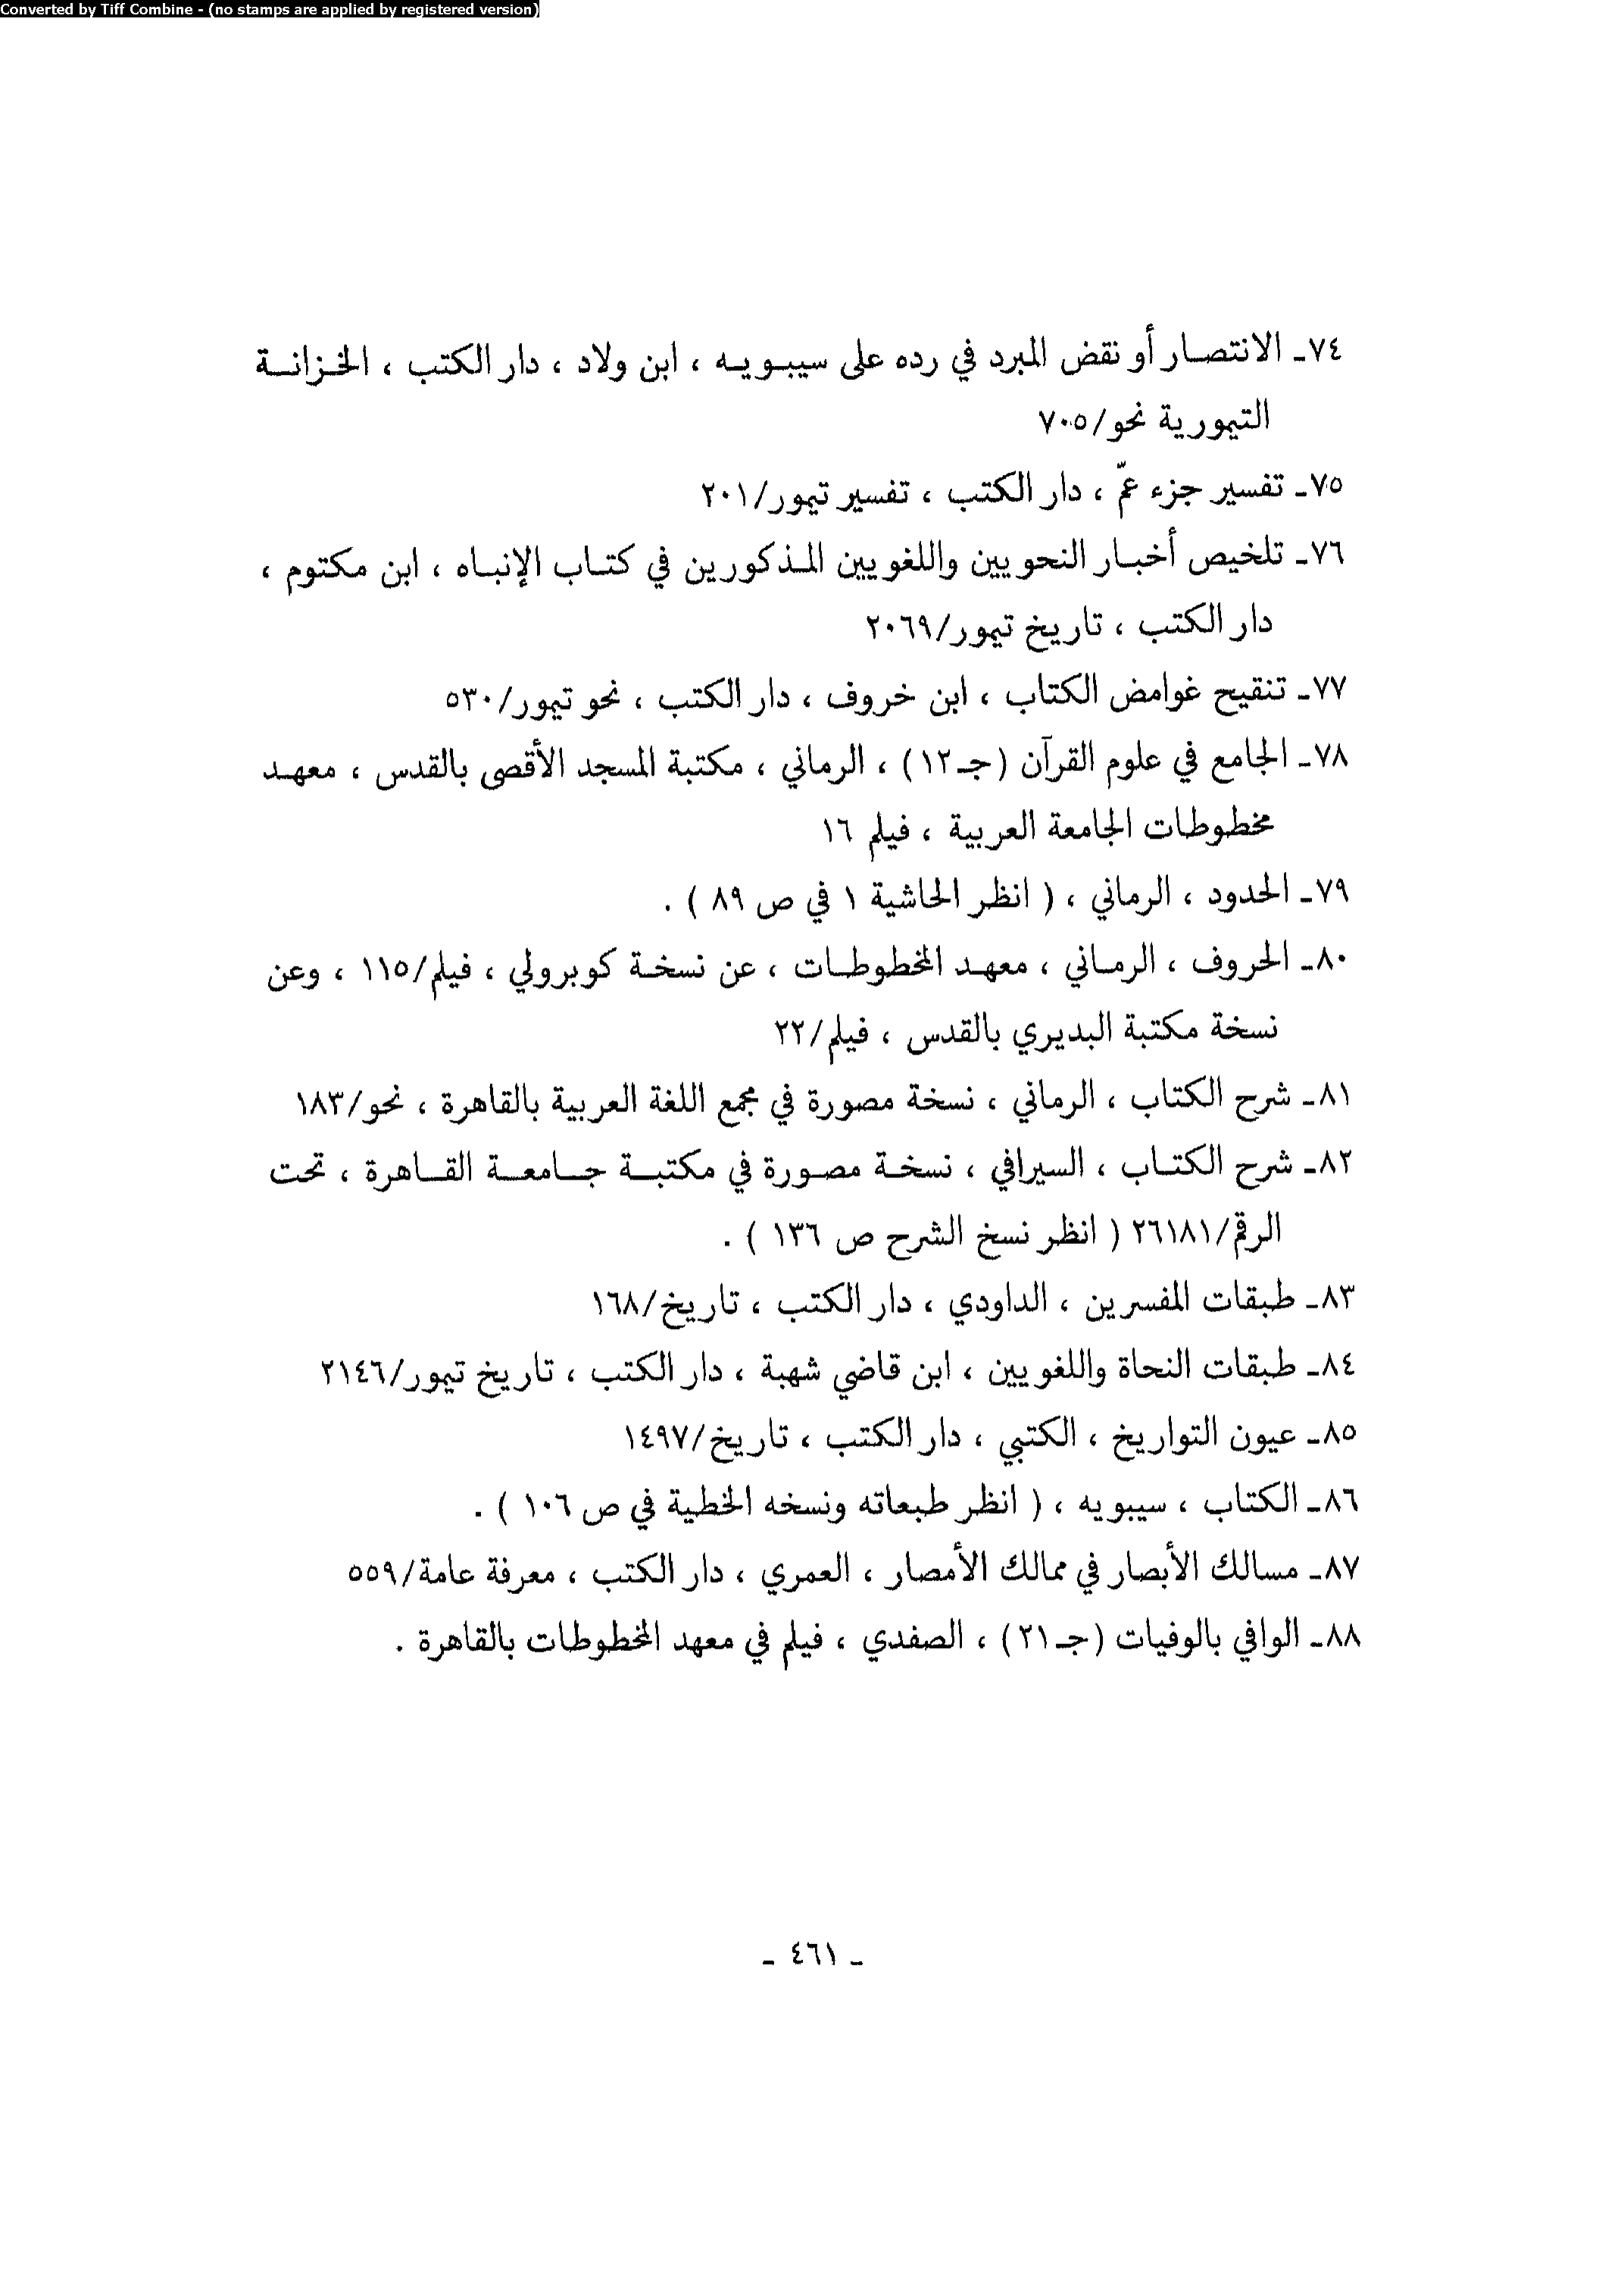 Converted by Tiff Combine - (no stamps are applied by registered version)
٧٤ـ الانتصار أو نقض المبرد في رده على سيبويه ، ابن ولاد ، دار الكتب ، الخزانة
التيمورية نحو/٧٠٥
٧٥ـ تفسير جزء عمّ ، دار الكتب ، تفسير تيمور/٢٠١
٧٦ـ تلخيص أخبار النحويين واللغويين المذكورين في كتاب الإنباه ، ابن مكتوم ،
دار الكتب ، تاريخ تيمور/٢٠٦٩
٧٧ـ تنقيح غوامض الكتاب ، ابن خروف ، دار الكتب ، نحو تيمور/٥٣٠
٧٨ـ الجامع في علوم القرآن (جـ١٢) ، الرماني ، مكتبة المسجد الأقصى بالقدس ، معهد
مخطوطات الجامعة العربية ، فيلم ١٦
٧٩ـ الحدود ، الرماني ، ( انظر الحاشية ١ في ص ٨٩ ) .
٨٠ـ الحروف ، الرماني ، معهد المخطوطات ، عن نسخة كوبرولي ، فيلم/١١٥ ، وعن
نسخة مكتبة البديري بالقدس ، فيلم/٢٢
٨١ـ شرح الكتاب ، الرماني ، نسخة مصورة في مجمع اللغة العربية بالقاهرة ، نحو/١٨٣
٨٢ـ شرح الكتاب ، السيرافي ، نسخة مصورة في مكتبة جامعة القاهرة ، تحت
الرقم/٢٦١٨١ ( انظر نسخ الشرح ص ١٣٦ ) .
٨٣ـ طبقات المفسرين ، الداودي ، دار الكتب ، تاريخ/١٦٨
٨٤ـ طبقات النحاة واللغويين ، ابن قاضي شهبة ، دار الكتب ، تاريخ تيمور/٢١٤٦
٨٥ـ عيون التواريخ ، الكتبي ، دار الكتب ، تاريخ/١٤٩٧
٨٦ـ الكتاب ، سيبويه ، ( انظر طبعاته ونسخه الخطية في ص ١٠٦ ) .
٨٧ـ مسالك الأبصار في ممالك الأمصار ، العمري ، دار الكتب ، معرفة عامة/٥٥٩
٨٨ـ الوافي بالوفيات (جـ٢١) ، الصفدي ، فيلم في معهد المخطوطات بالقاهرة .
ـ ٤٦١ ـ